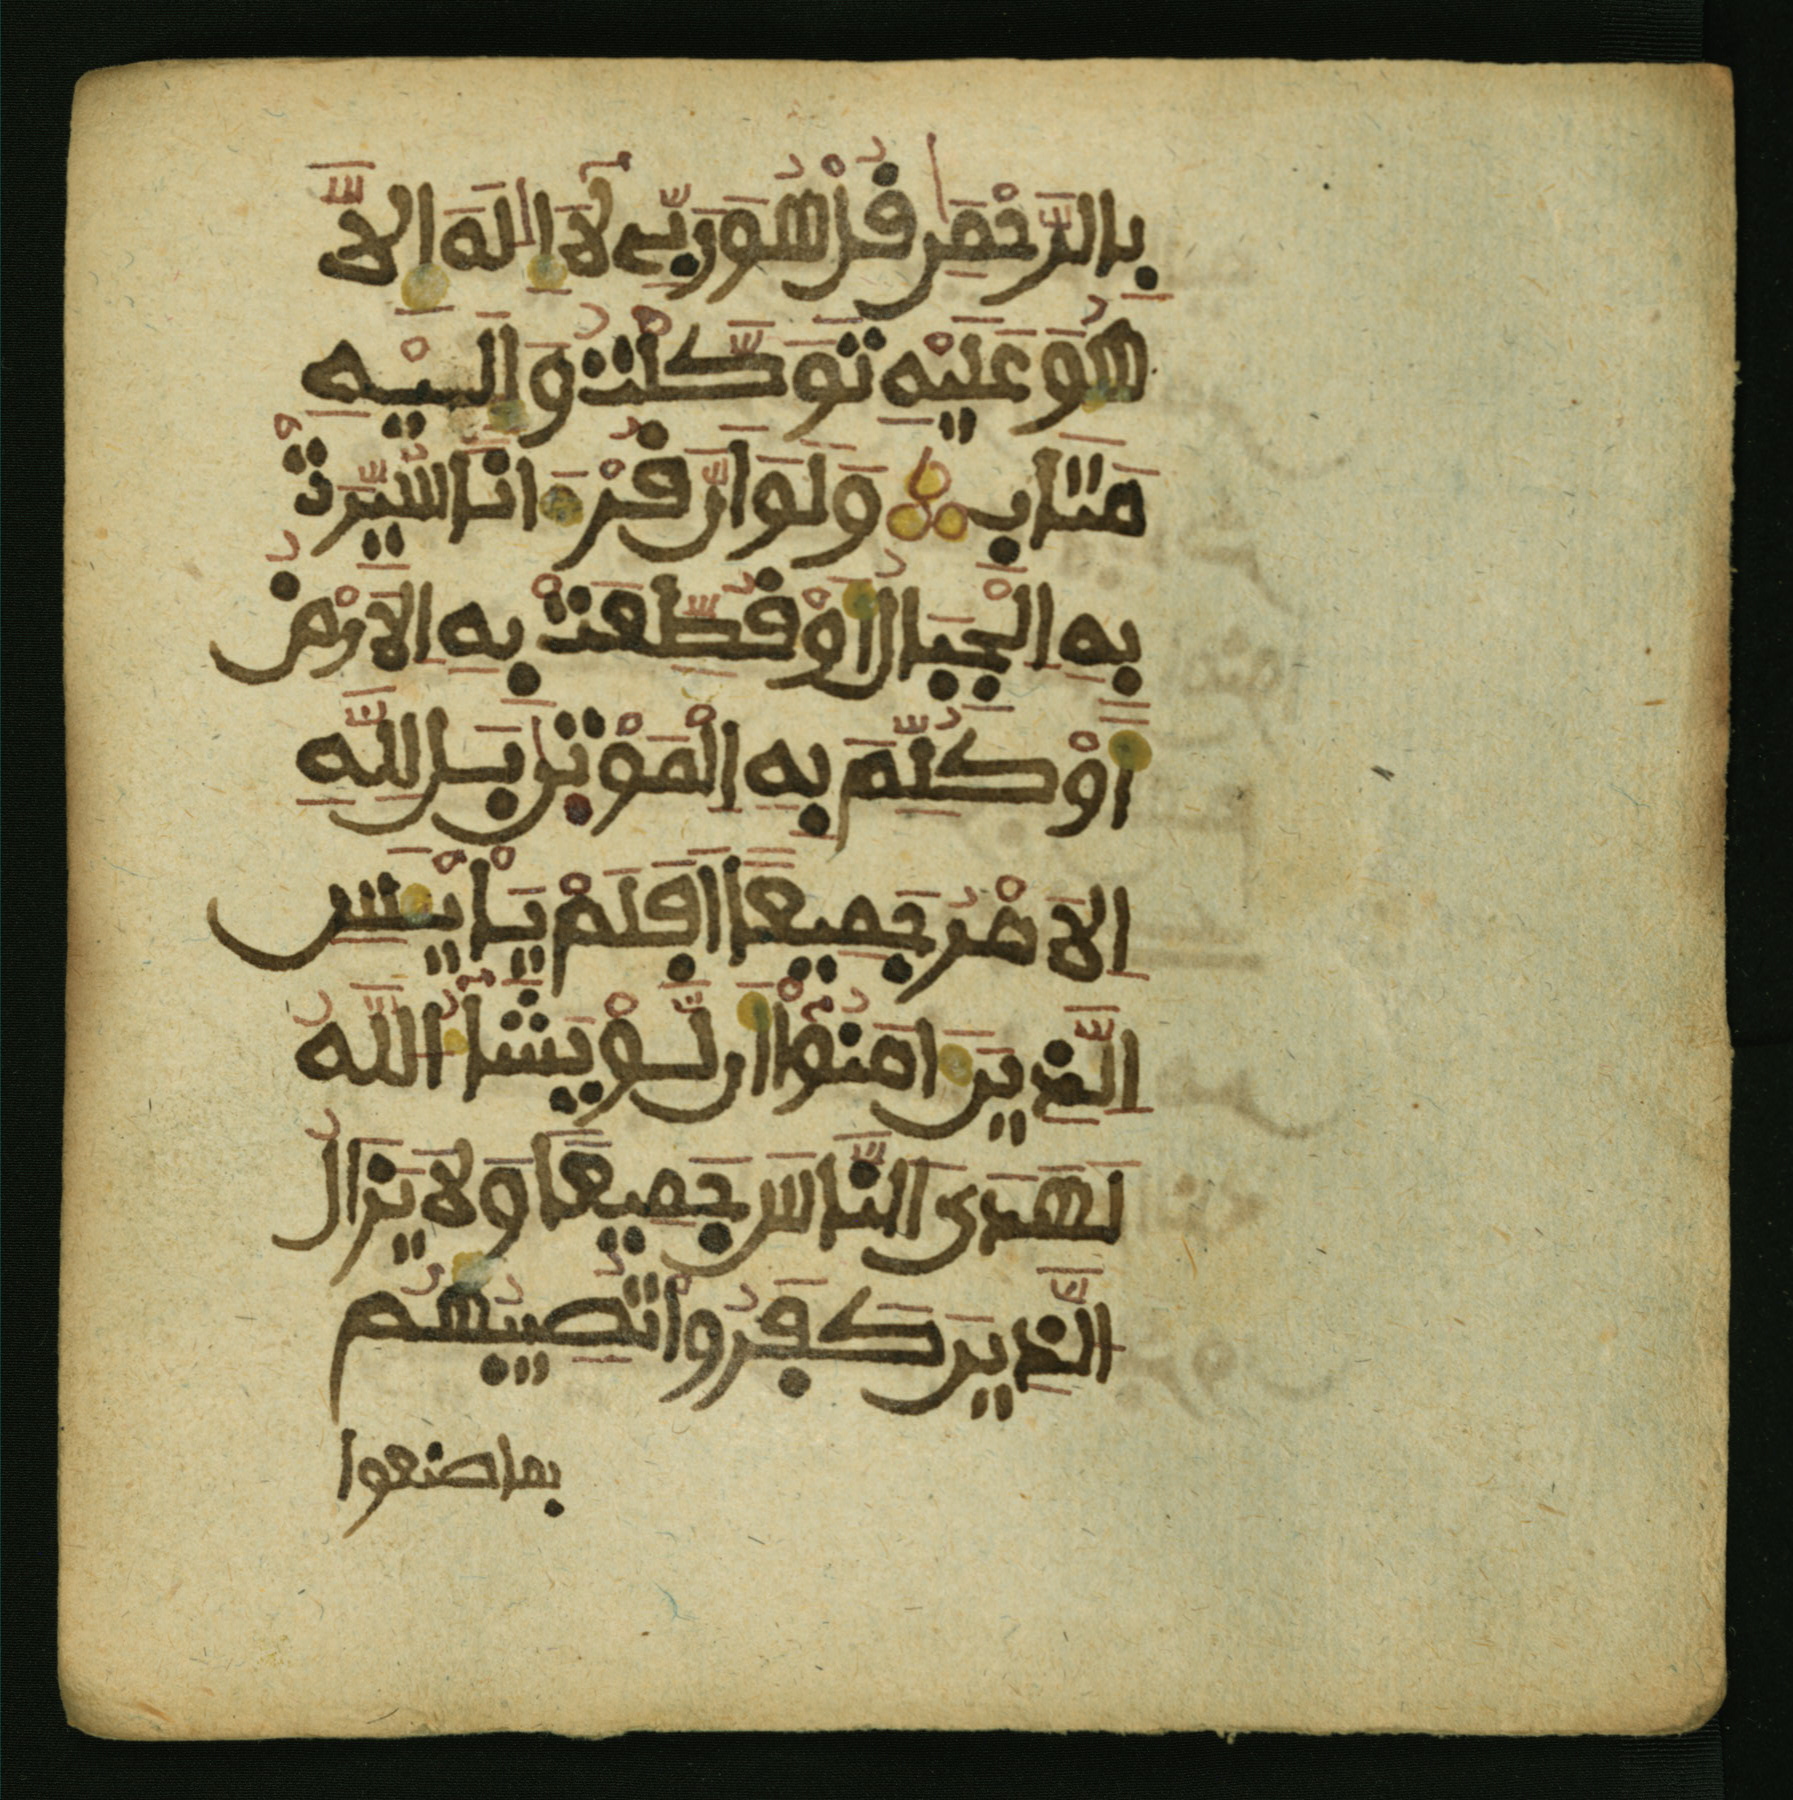 بِالرَّحْمَٰنِ قُلْ هُوَ رَبِّي لَا إِلَٰهَ إِلَّا
هُوَ عَلَيْهِ تَوَكَّلْتُ وَإِلَيْهِ
مَتَابِ وَلَوْ أَنَّ قُرْءَانًا سُيِّرَتْ
بِهِ الْجِبَالُ أَوْ قُطِّعَتْ بِهِ الْأَرْضُ
أَوْ كُلِّمَ بِهِ الْمَوْتَىٰ بَل لِّلَّهِ
الْأَمْرُ جَمِيعًا أَفَلَمْ يَاْيْـَٔسِ
الَّذِينَ ءَامَنُوا أَن لَّوْ يَشَاءُ اللَّهُ
لَهَدَى النَّاسَ جَمِيعًا وَلَا يَزَالُ
الَّذِينَ كَفَرُوا تُصِيبُهُم
بما صنعوا